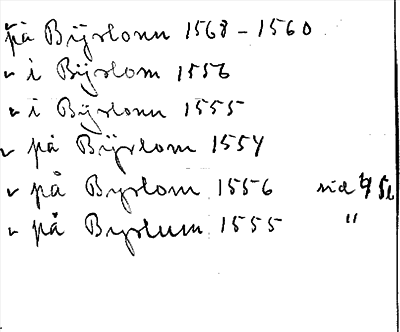 på Bÿrlonn 1568 - 1560
i Bÿrlom 1556
i Bÿrlonn 1555
på Bÿrlom 1554
på Byrlom 1556 sid
på Byrlum 1555 "